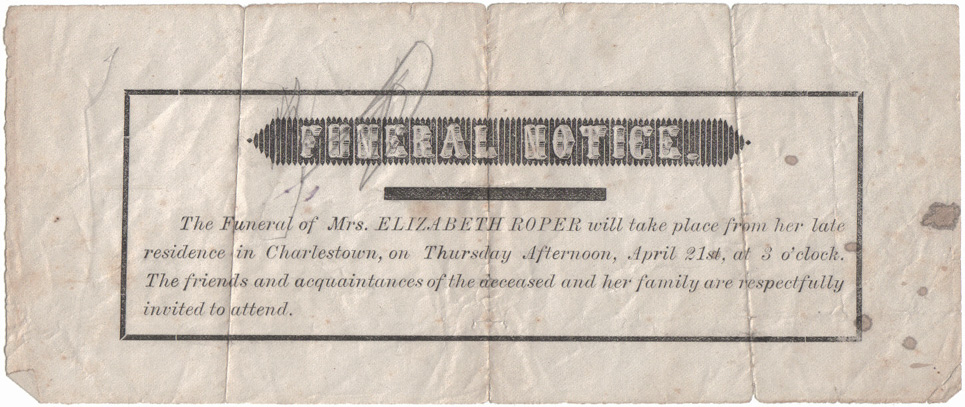 FUNERAL NOTICE.
The Funeral of Mrs. ELIZABETH ROPER will take place from her late
residence in Charlestown, on Thursday Afternoon, April 21st, at 3 o'clock.
The friends and acquaintances of the deceased and her family are respectfully
invited to attend.